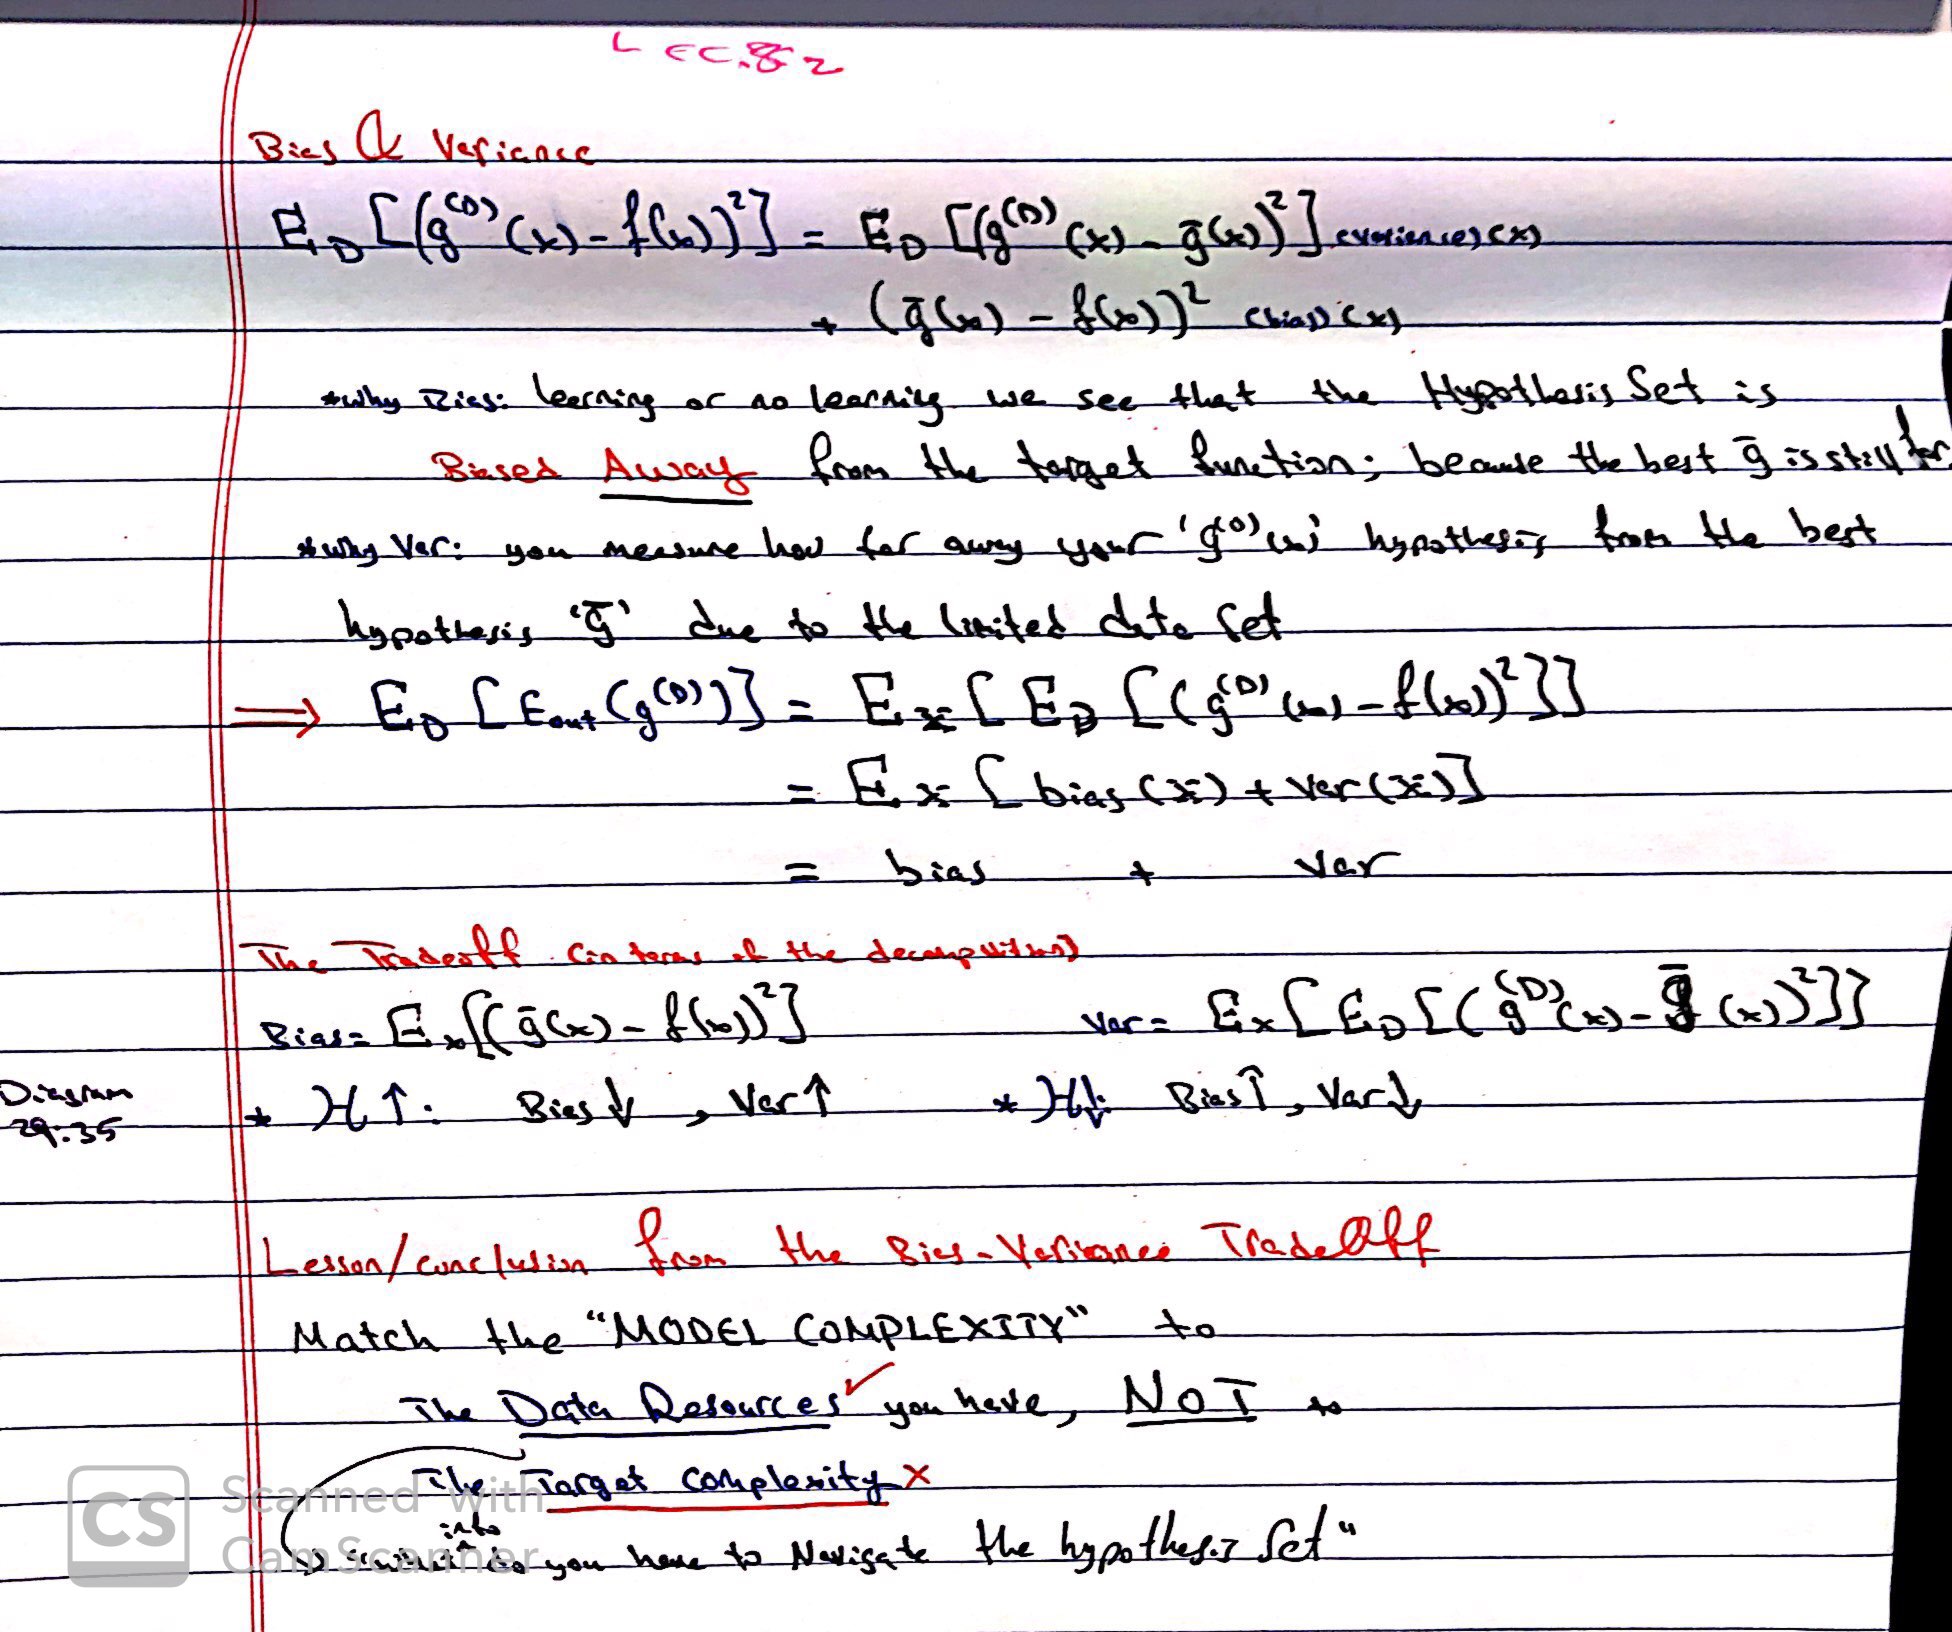 Lec.8 2
Bias & Variance
E_D [(g^(D)(x) - f(x))²] = E_D [(g^(D)(x) - ḡ(x))²] (variance)(x)
+ (ḡ(x) - f(x))² (bias)(x)
*why Bias: learning or no learning we see that the Hypothesis Set is
Biased Away from the target function; because the best ḡ is still far
*why Var: you measure how far away your 'g^(D)(x)' hypothesis from the best
hypothesis 'ḡ' due to the limited data set
⟹ E_D [E_out(g^(D))] = E_x [E_D [(g^(D)(x) - f(x))²]]
= E_x [bias(x) + var(x)]
= bias + var
The Tradeoff (in terms of the decomposition)
Bias = E_x[(ḡ(x) - f(x))²] var = E_x[E_D[(g^(D)(x) - ḡ(x))²]]
Diagram 29:35
* H↑: Bias↓, Var↑ * H↓: Bias↑, Var↓
Lesson/conclusion from the Bias-Variance TradeOff
Match the "MODEL COMPLEXITY" to
The Data Resources ✓ you have, NOT to
The Target Complexity ✗
into you have to Navigate the hypothesis Set"
CS Scanned with CamScanner